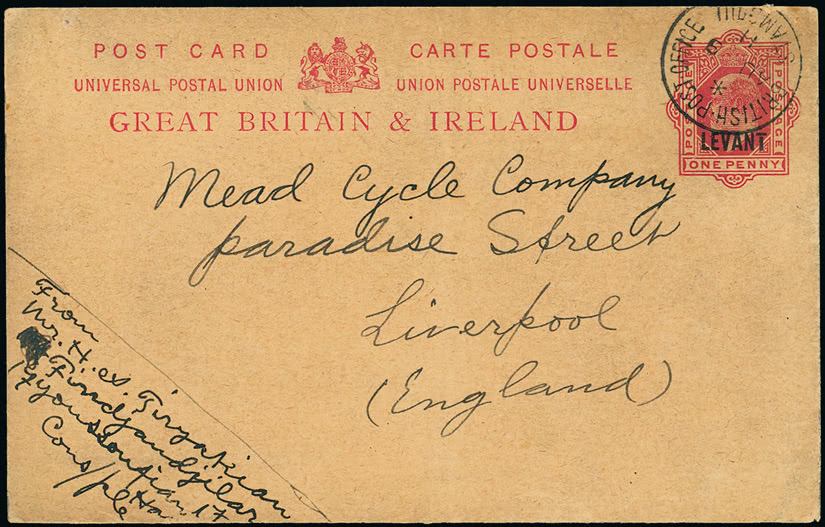 POST CARD CARTE POSTALE
UNIVERSAL POSTAL UNION UNION POSTALE UNIVERSELLE
GREAT BRITAIN & IRELAND
BRITISH·POST OFFICE STAMBOUL
POSTAGE
LEVANT
ONE PENNY
Mead Cycle Company
paradise Street
Liverpool
(England)
From
Mr. H. A. Tiryakian
Findjandjilar
Youssoufian
17
Cons/ple